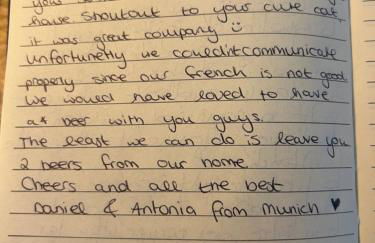 house shoutout to your cute cat,
it was great company :)
unfortunetly we couldn't communicate
properly since our french is not good
we would have loved to have
a beer with you guys.
The least we can do is leave you
2 beers from our home
Cheers and all the best
Daniel & Antonia from Munich ♥